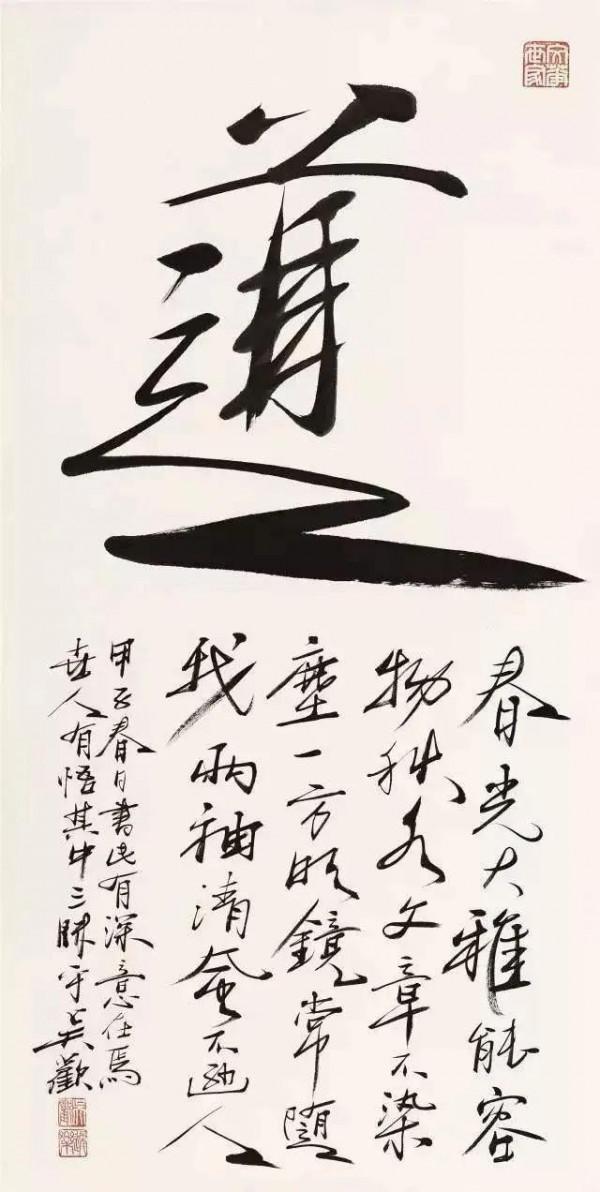 道
春光大雅能容
物秋水文章不染
塵一方明鏡常隨
我兩袖清風不人
甲午春日書此有深意在焉
世人有悟其中三昧乎吳歡